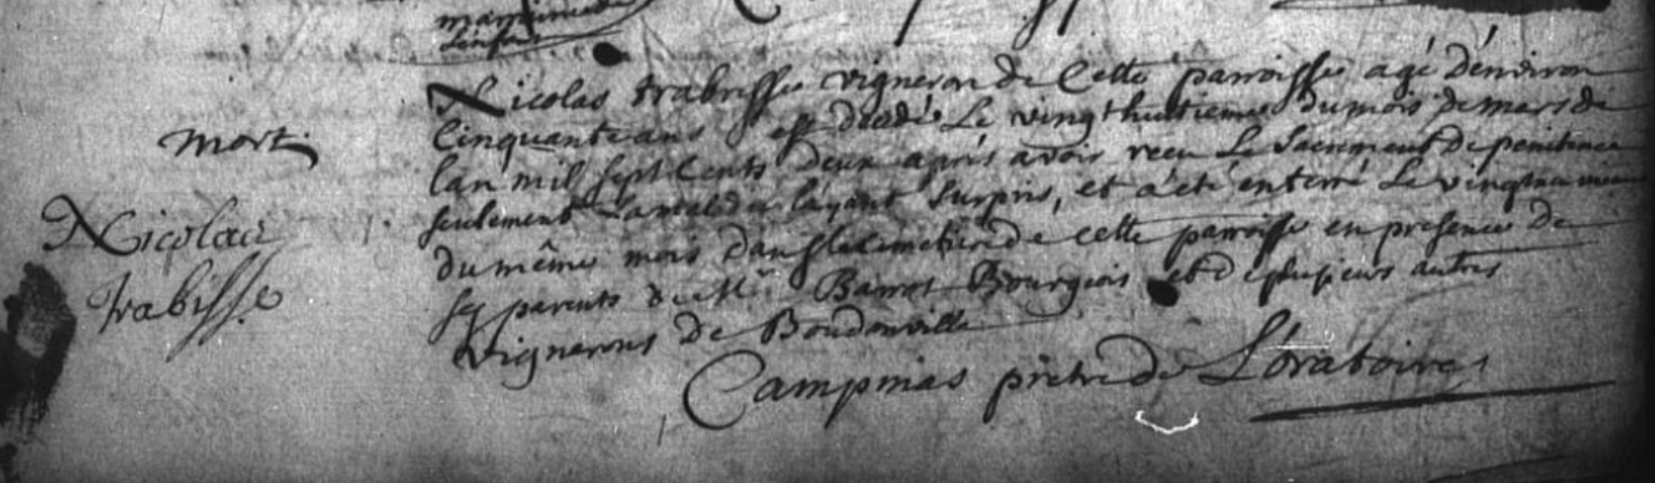 mort
Nicolas
trabisse
Nicolas trabisse vigneron de Cette parroisse agé d'environ
Cinquante ans est decedé Le vingt huitieme du mois de mars de
lan mil sept Cents deux aprés avoir receu Le Sacrement de penitence
seulement La maladie l'ayant surpris, et a été enterré Le vingtneuvieme
du même mois dans le cimetiere de cette parroisse en presence de
ses parents de Mr Barrot Bourgeois et de plusieurs autres
vignerons de Boudonville
Campmas prêtre de L'oratoire